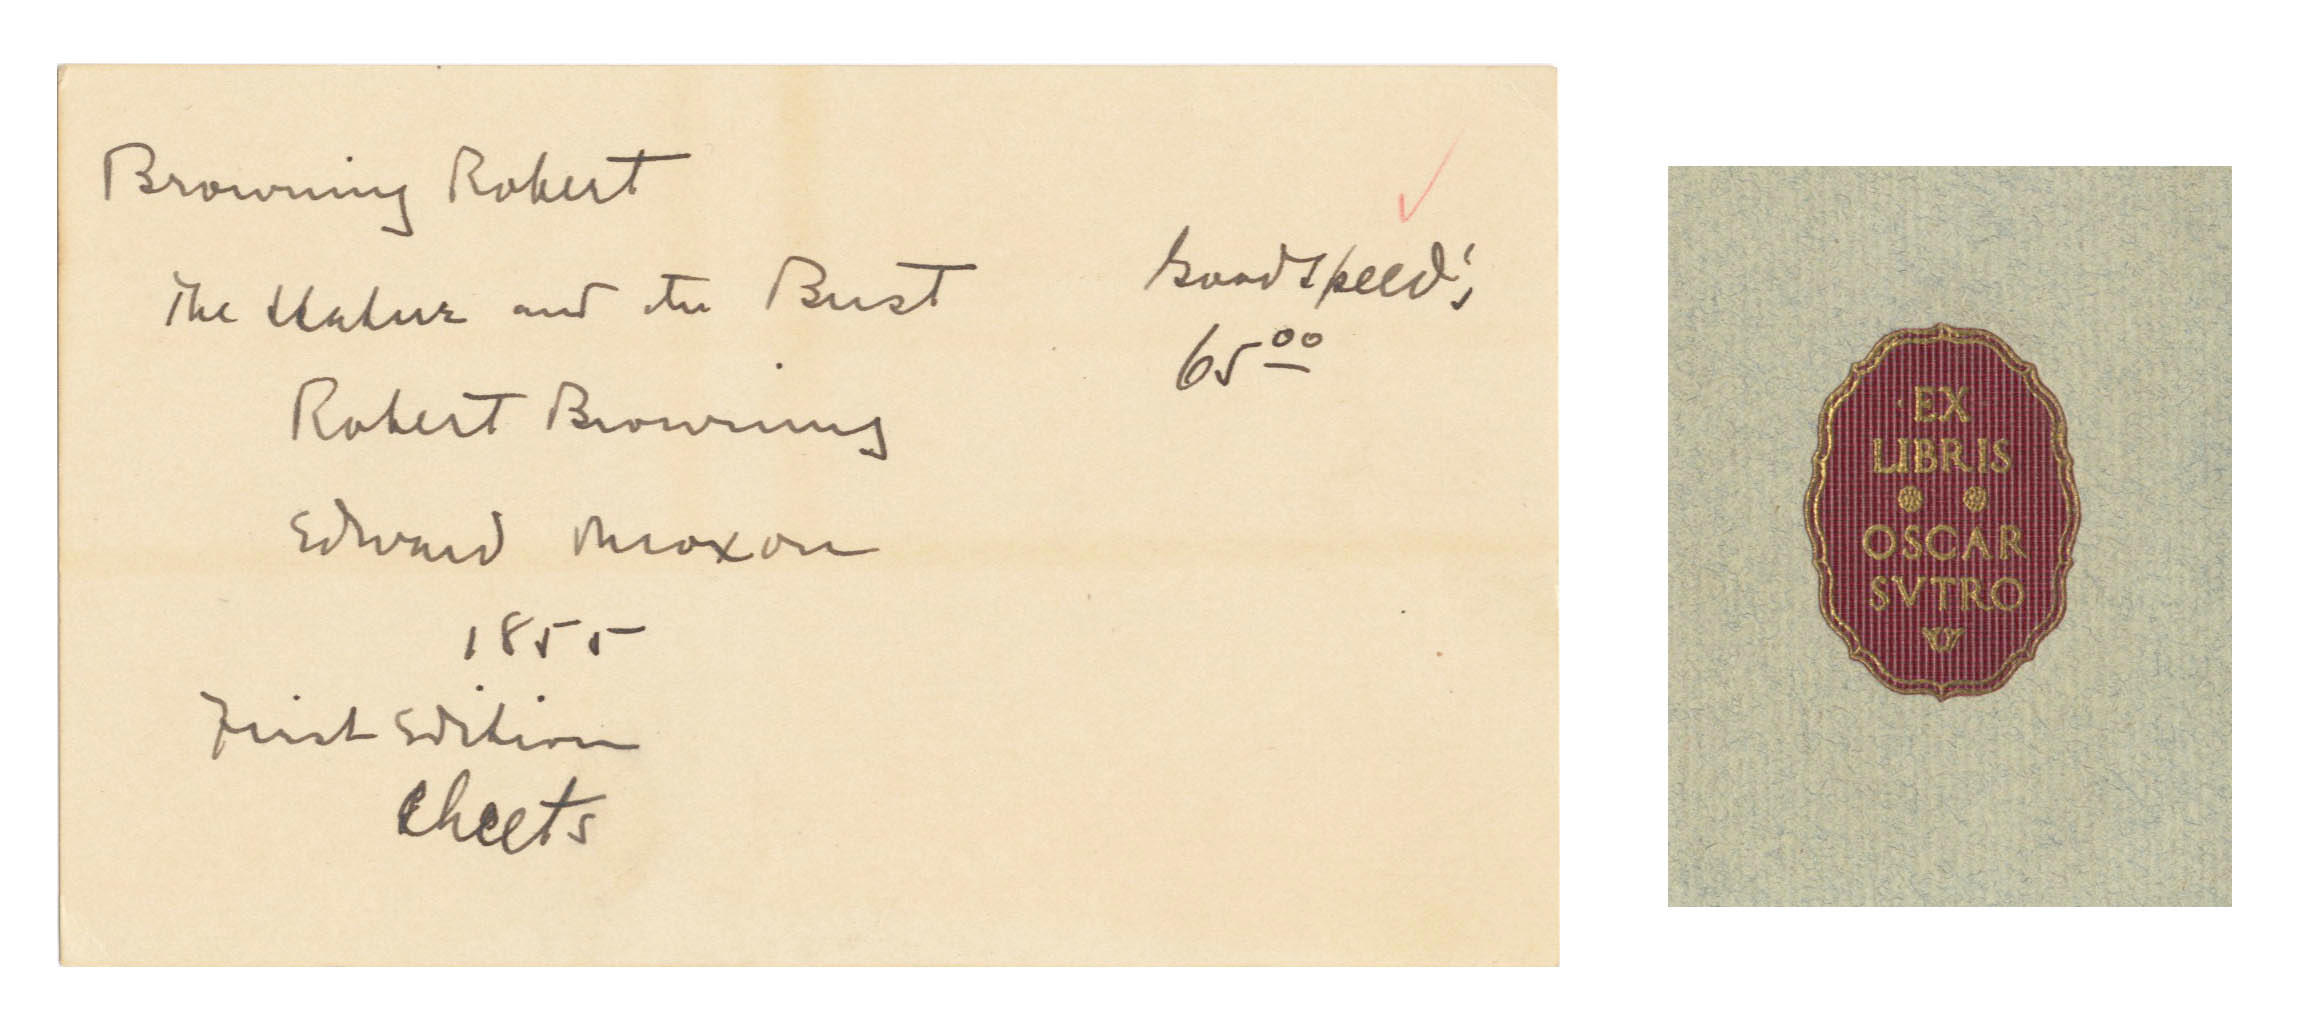 Browning Robert
The Statue and the Bust
Goodspeed's
65.00
Robert Browning
Edward Moxon
1855
First Edition
Sheets
EX
LIBRIS
OSCAR
SVTRO